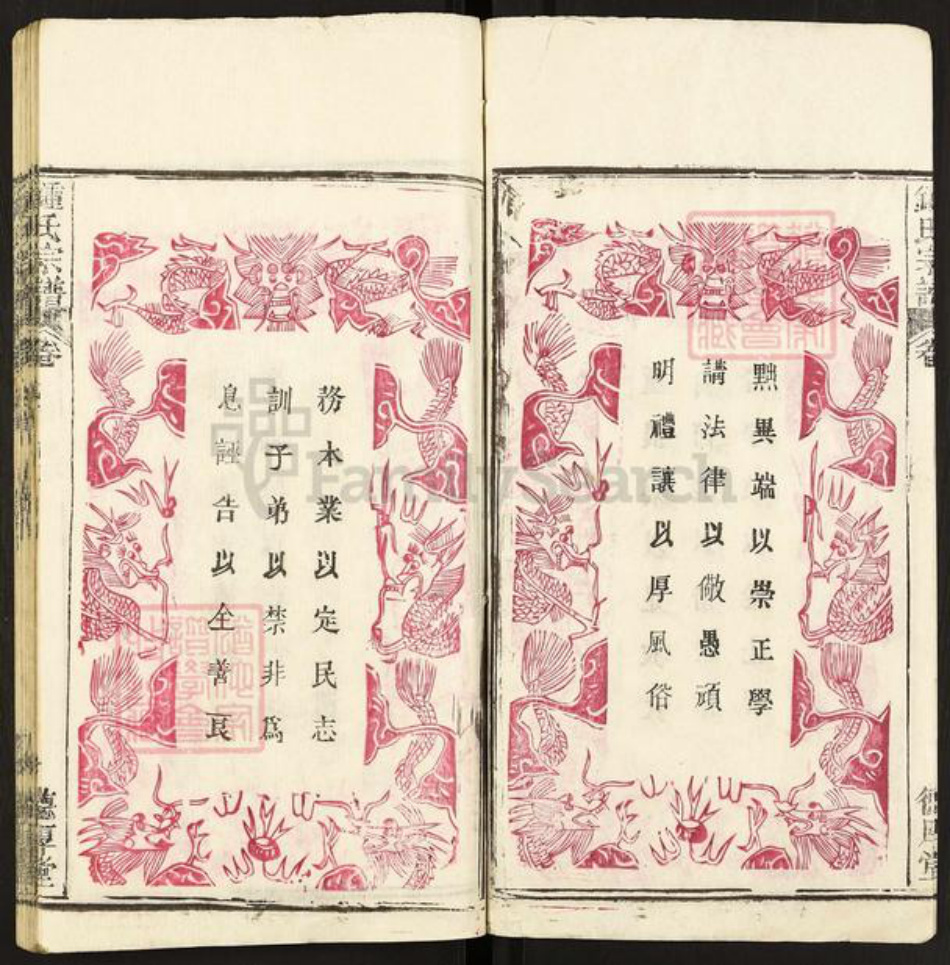 黜異端以崇正學
講法律以儆愚頑
明禮讓以厚風俗
務本業以定民志
訓子弟以禁非為
息誣告以全善良
鍾氏宗譜
卷
德厚堂
鍾氏宗譜
卷
德厚堂
FamilySearch